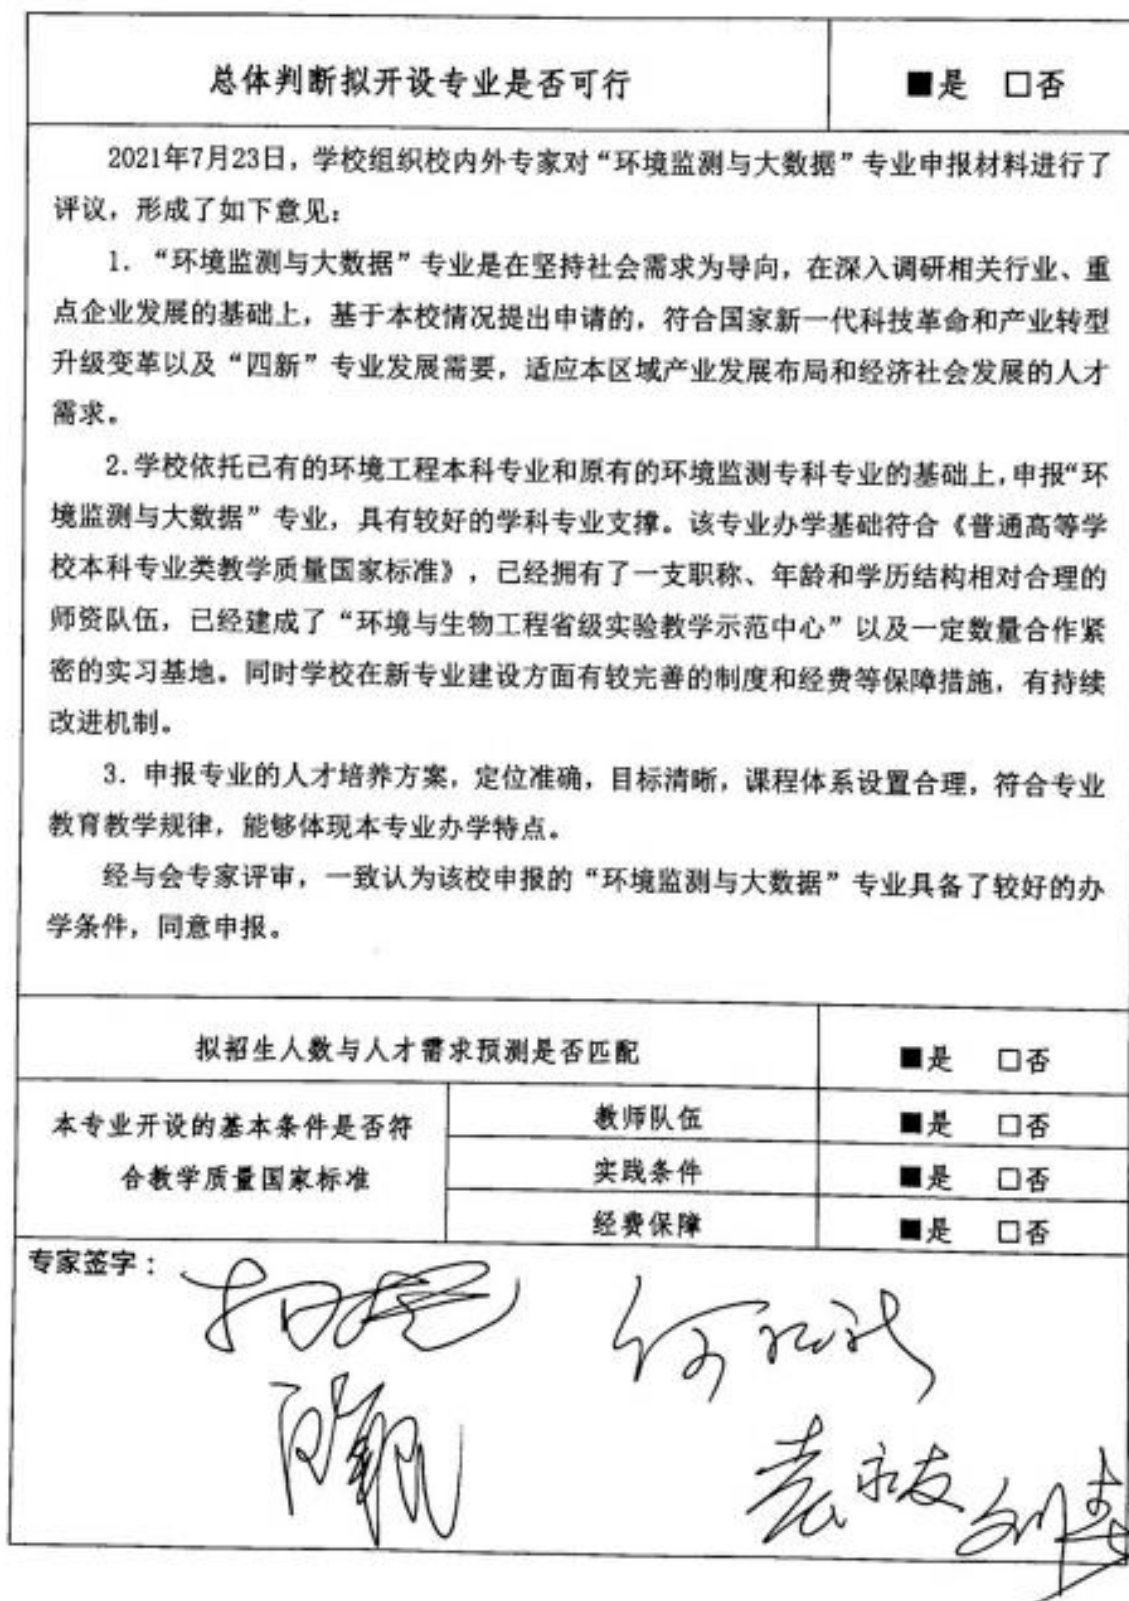 总体判断拟开设专业是否可行 ■是 □否
2021年7月23日，学校组织校内外专家对“环境监测与大数据”专业申报材料进行了
评议，形成了如下意见：
1. “环境监测与大数据”专业是在坚持社会需求为导向，在深入调研相关行业、重
点企业发展的基础上，基于本校情况提出申请的，符合国家新一代科技革命和产业转型
升级变革以及“四新”专业发展需要，适应本区域产业发展布局和经济社会发展的人才
需求。
2.学校依托已有的环境工程本科专业和原有的环境监测专科专业的基础上，申报“环
境监测与大数据”专业，具有较好的学科专业支撑。该专业办学基础符合《普通高等学
校本科专业类教学质量国家标准》，已经拥有了一支职称、年龄和学历结构相对合理的
师资队伍，已经建成了“环境与生物工程省级实验教学示范中心”以及一定数量合作紧
密的实习基地。同时学校在新专业建设方面有较完善的制度和经费等保障措施，有持续
改进机制。
3. 申报专业的人才培养方案，定位准确，目标清晰，课程体系设置合理，符合专业
教育教学规律，能够体现本专业办学特点。
经与会专家评审，一致认为该校申报的“环境监测与大数据”专业具备了较好的办
学条件，同意申报。
拟招生人数与人才需求预测是否匹配 ■是 □否
本专业开设的基本条件是否符
合教学质量国家标准
教师队伍 ■是 □否
实践条件 ■是 □否
经费保障 ■是 □否
专家签字：
袁永友